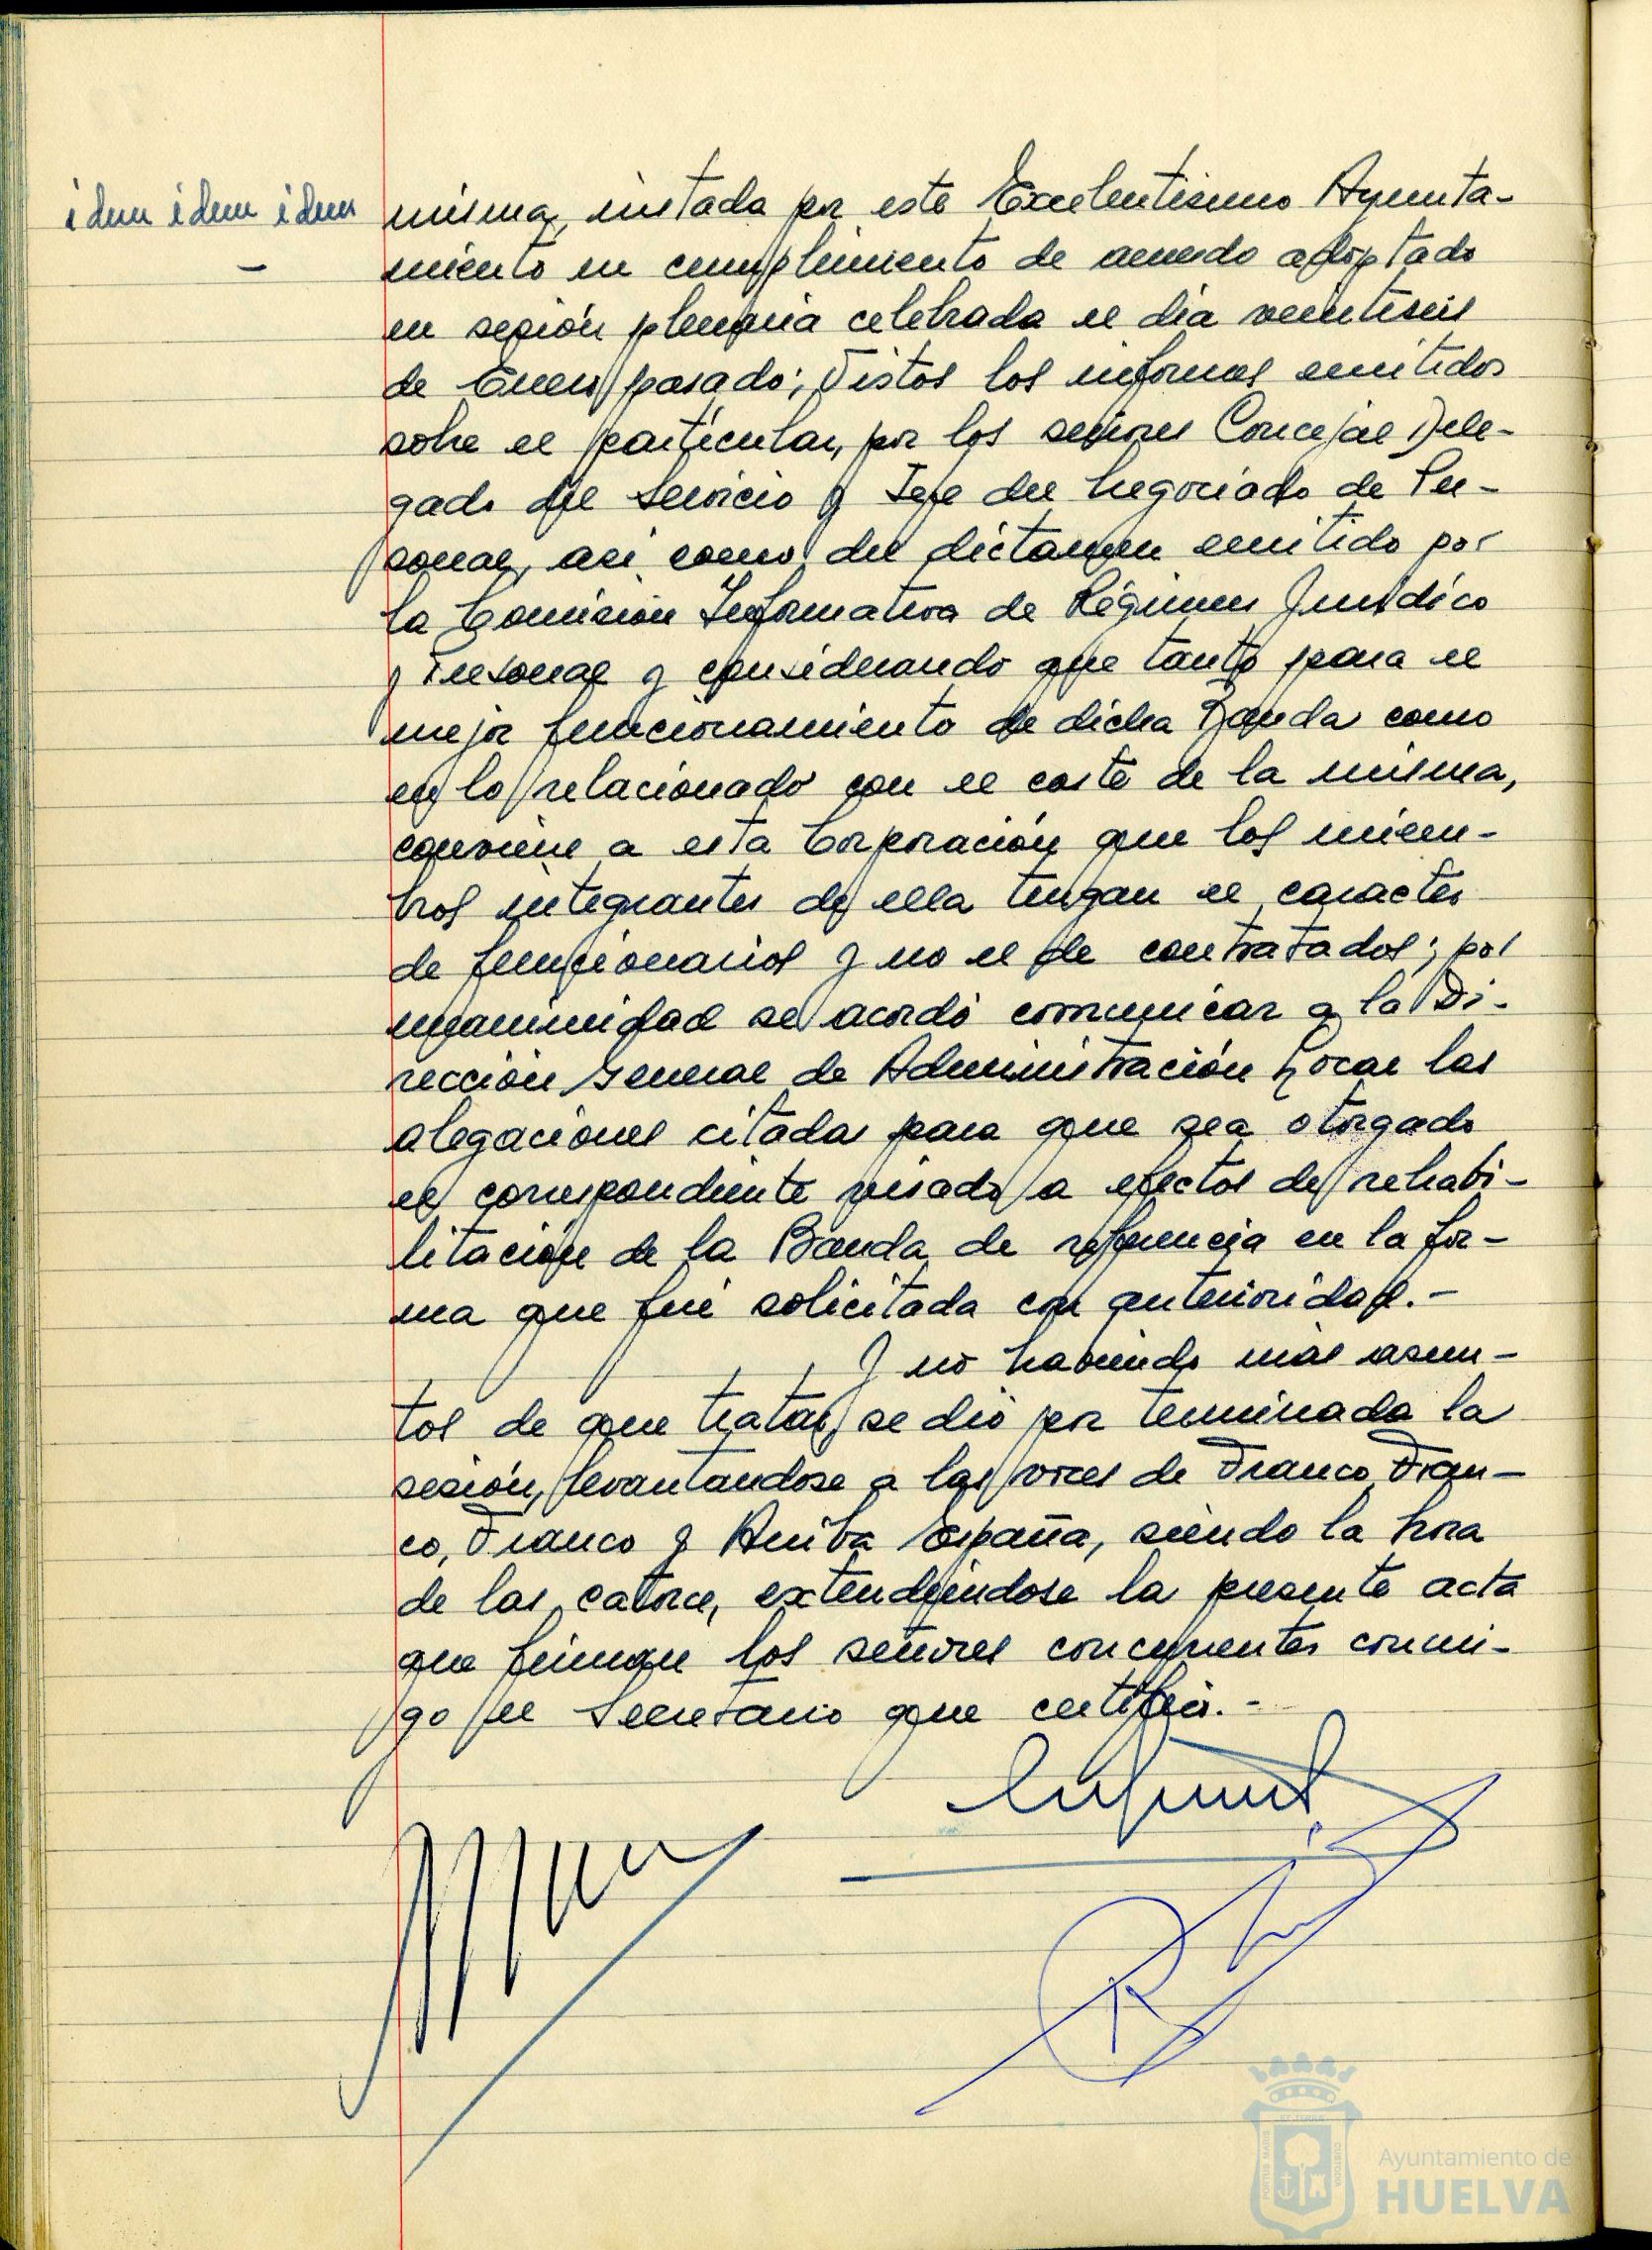 idem idem idem
misma, instada por este Excelentísimo Ayunta-
miento en cumplimiento de acuerdo adoptado
en sesión plenaria celebrada el día veintiseis
de Enero pasado; Vistos los informes emitidos
sobre el particular, por los señores Concejal Dele-
gado del Servicio y Jefe del Negociado de Per-
sonal, asi como del dictamen emitido por
la Comisión Informativa de Régimen Jurídico
y Personal y considerando que tanto para el
mejor funcionamiento de dicha Banda como
en lo relacionado con el coste de la misma,
conviene a esta Corporación que los miem-
bros integrantes de ella tengan el caracter
de funcionarios y no el de contratados; por
unanimidad se acordó comunicar a la Di-
rección General de Administración Local las
alegaciones citadas para que sea otorgado
el correspondiente visado a efectos de rehabi-
litación de la Banda de referencia en la for-
ma que fué solicitada con anterioridad.-
Y no habiendo más asun-
tos de que tratar, se dió por terminada la
sesión, levantandose a las voces de Franco, Fran-
co, Franco y Arriba España, siendo la hora
de las catorce, extendiéndose la presente acta
que firman los señores concurrentes conmi-
go el Secretario que certifico.-
Ayuntamiento de
HUELVA